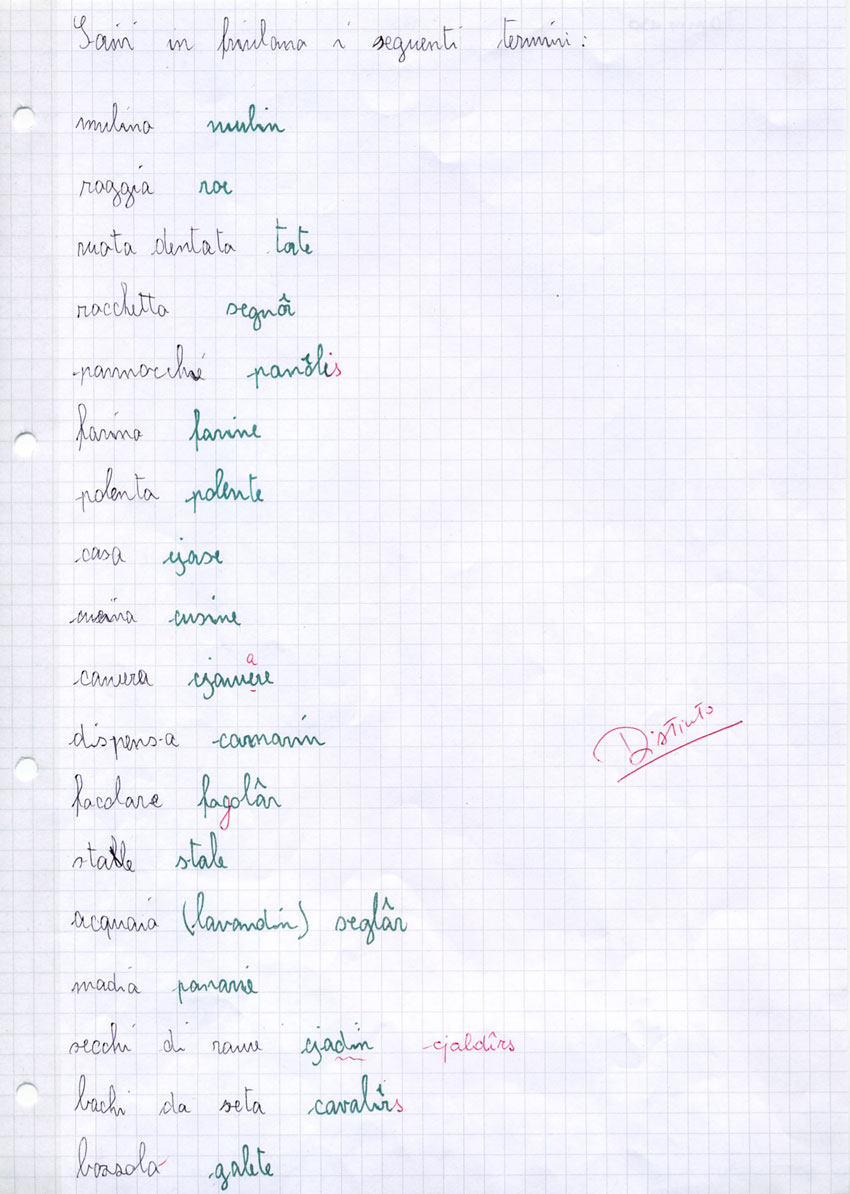 Scrivi in friulano i seguenti termini:
mulino mulin
roggia roe
ruota dentata tote
racchetta segnôr
pannocchie panôlis
farina farine
polenta polente
casa cjase
cucina cusine
a
camera cjamere
dispensa camarin
Distinto
focolare fogolâr
stalle stale
acquaio (lavandin) seglâr
madia panarie
secchi di rame cjadin cjaldîrs
bachi da seta cavalîrs
bozzolo galete